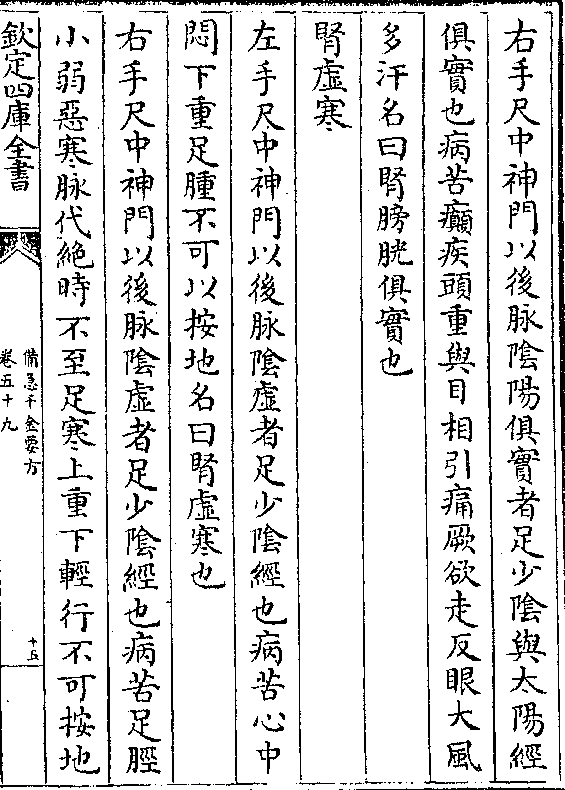 右手尺中神門以後脉陰陽俱實者足少陰與太陽經
俱實也病苦癲疾頭重與目相引痛厥欲走反眼大風
多汗名曰腎膀胱俱實也
腎虛寒
左手尺中神門以後脉陰虛者足少陰經也病苦心中
悶下重足腫不可以按地名曰腎虛寒也
右手尺中神門以後脉陰虛者足少陰經也病苦足脛
小弱惡寒脉代絶時不至足寒上重下輕行不可按地
欽定四庫全書
備急千金要方
卷五十九
十五